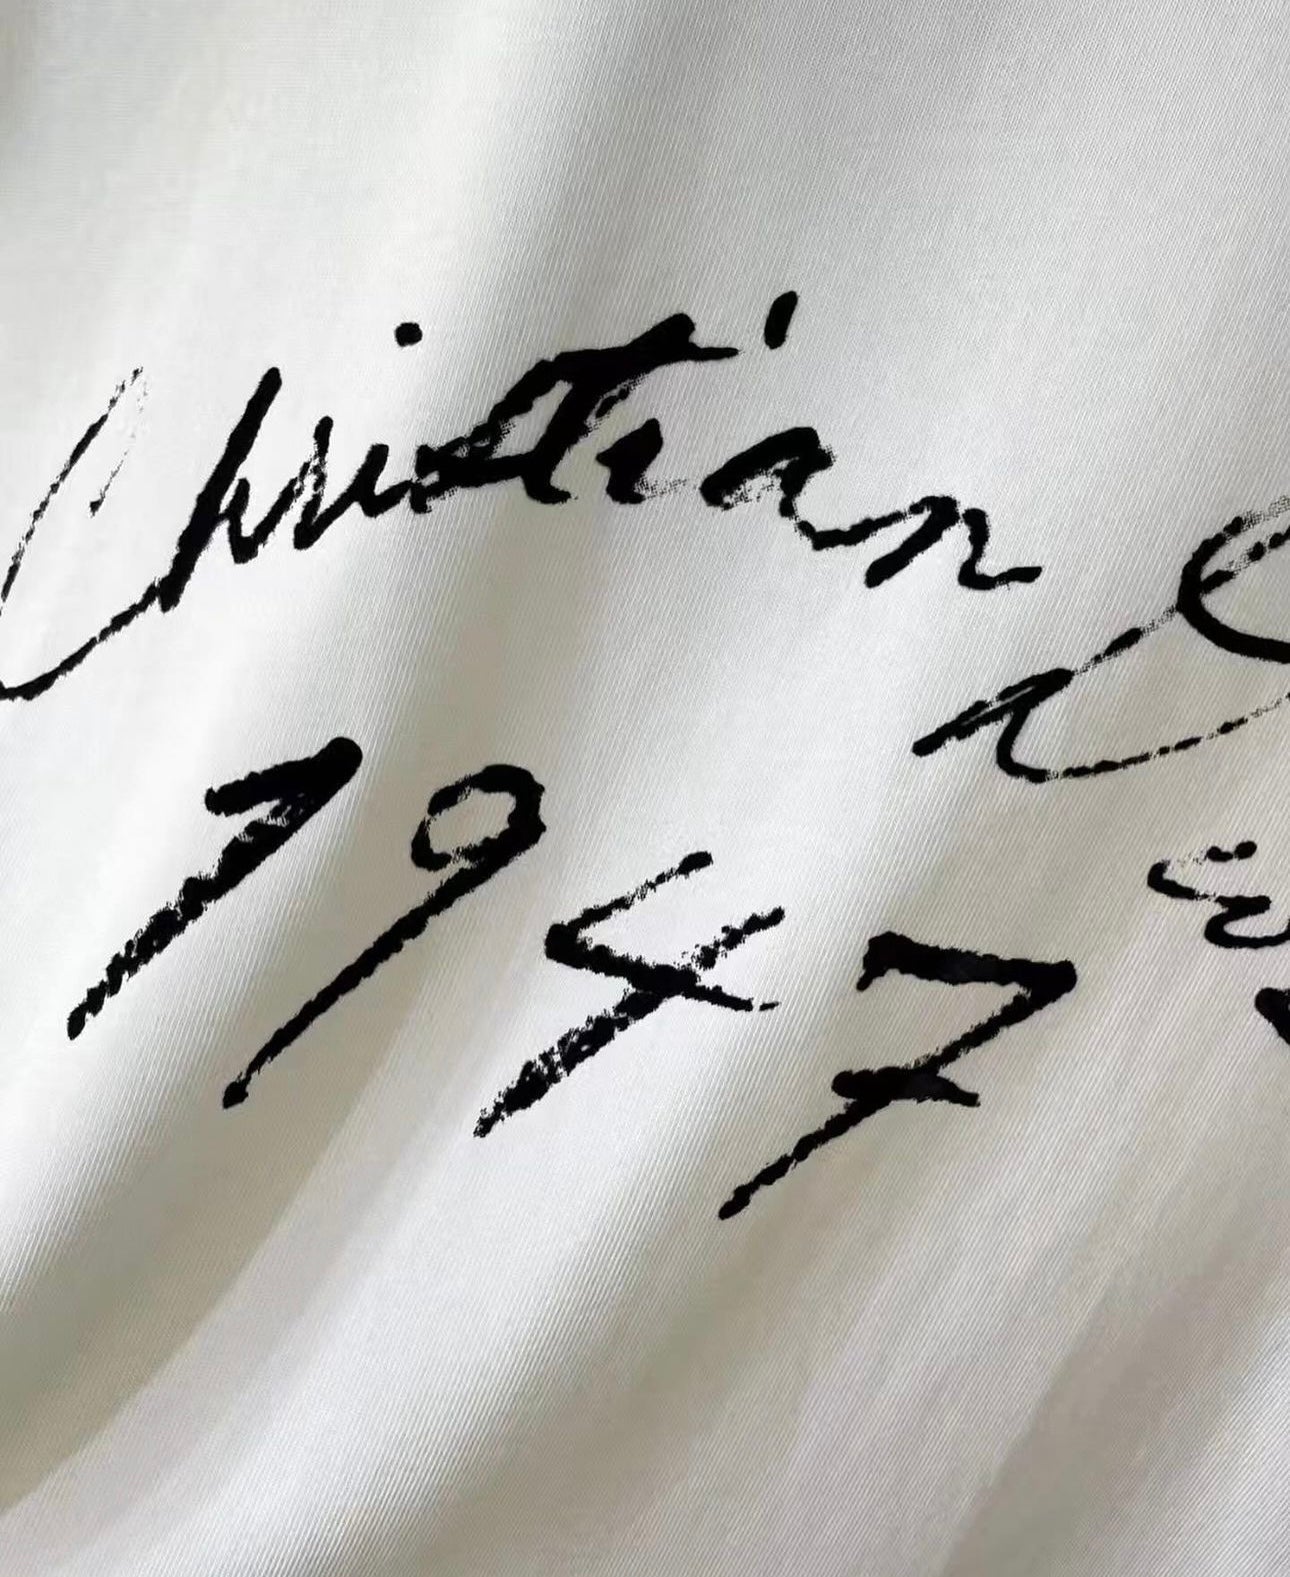 Christian
1947